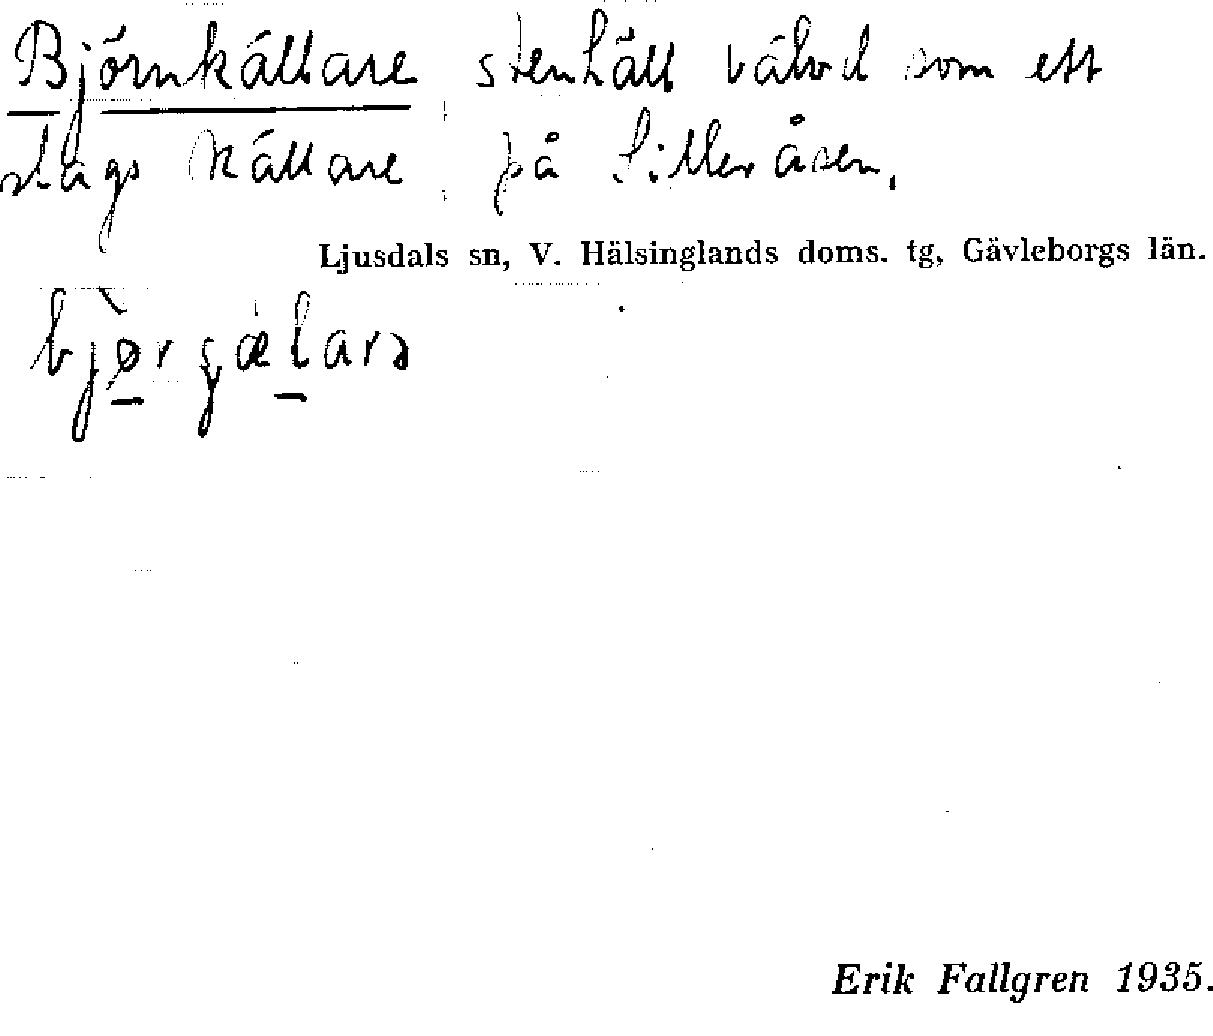 Björnkällare stenhäll välvd som ett
slags källare på Silleråsen.
Ljusdals sn, V. Hälsinglands doms. tg, Gävleborgs län.
Erik Fallgren 1935.